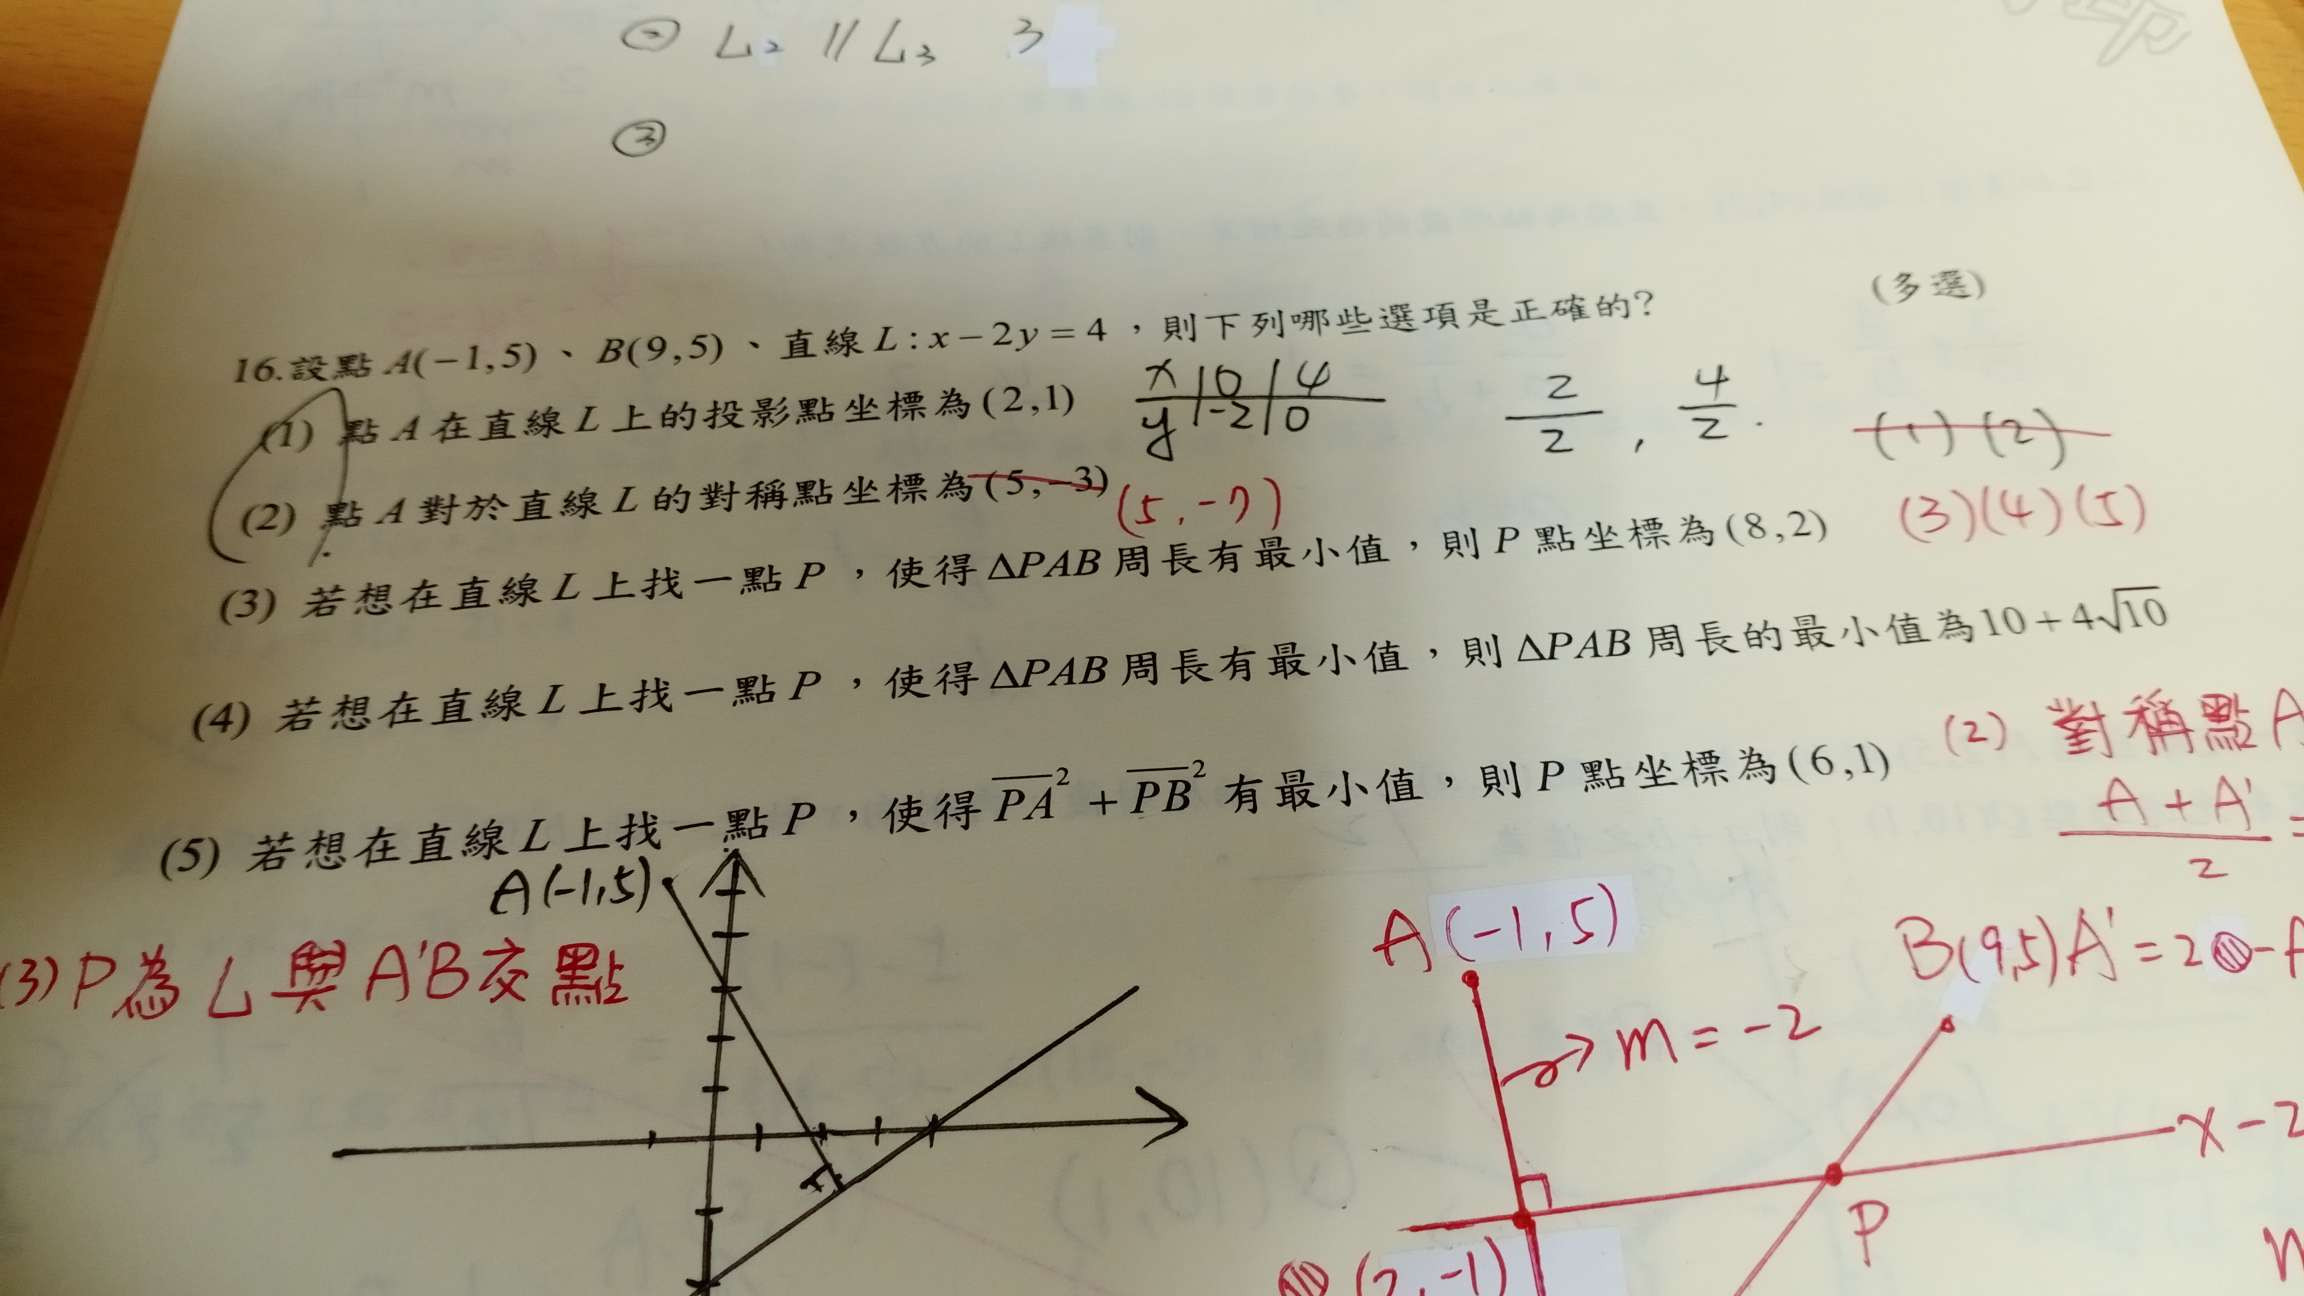 ㊀ L₂ // L₃ 3
③
(多選)
16.設點 A(−1,5)、B(9,5)、直線 L:x−2y=4,則下列哪些選項是正確的?
(1) 點 A 在直線 L 上的投影點坐標為(2,1)
x | 0 | 4
y | -2 | 0
2/2 , 4/2 .
(1) (2)
(2) 點 A 對於直線 L 的對稱點坐標為(5,−3) (5,-7)
(3)(4)(5)
(3) 若想在直線 L 上找一點 P ,使得 ΔPAB 周長有最小值,則 P 點坐標為(8,2)
(4) 若想在直線 L 上找一點 P ,使得 ΔPAB 周長有最小值,則 ΔPAB 周長的最小值為10+4√10
(5) 若想在直線 L 上找一點 P ,使得 PA² + PB² 有最小值,則 P 點坐標為(6,1)
(2) 對稱點A
A + A' / 2 =
A(-1,5)
(3) P為 L 與 A'B交點
A(-1,5)
B(9,5) A' = 2 - A
m = -2
x - 2
P
(2,-1)